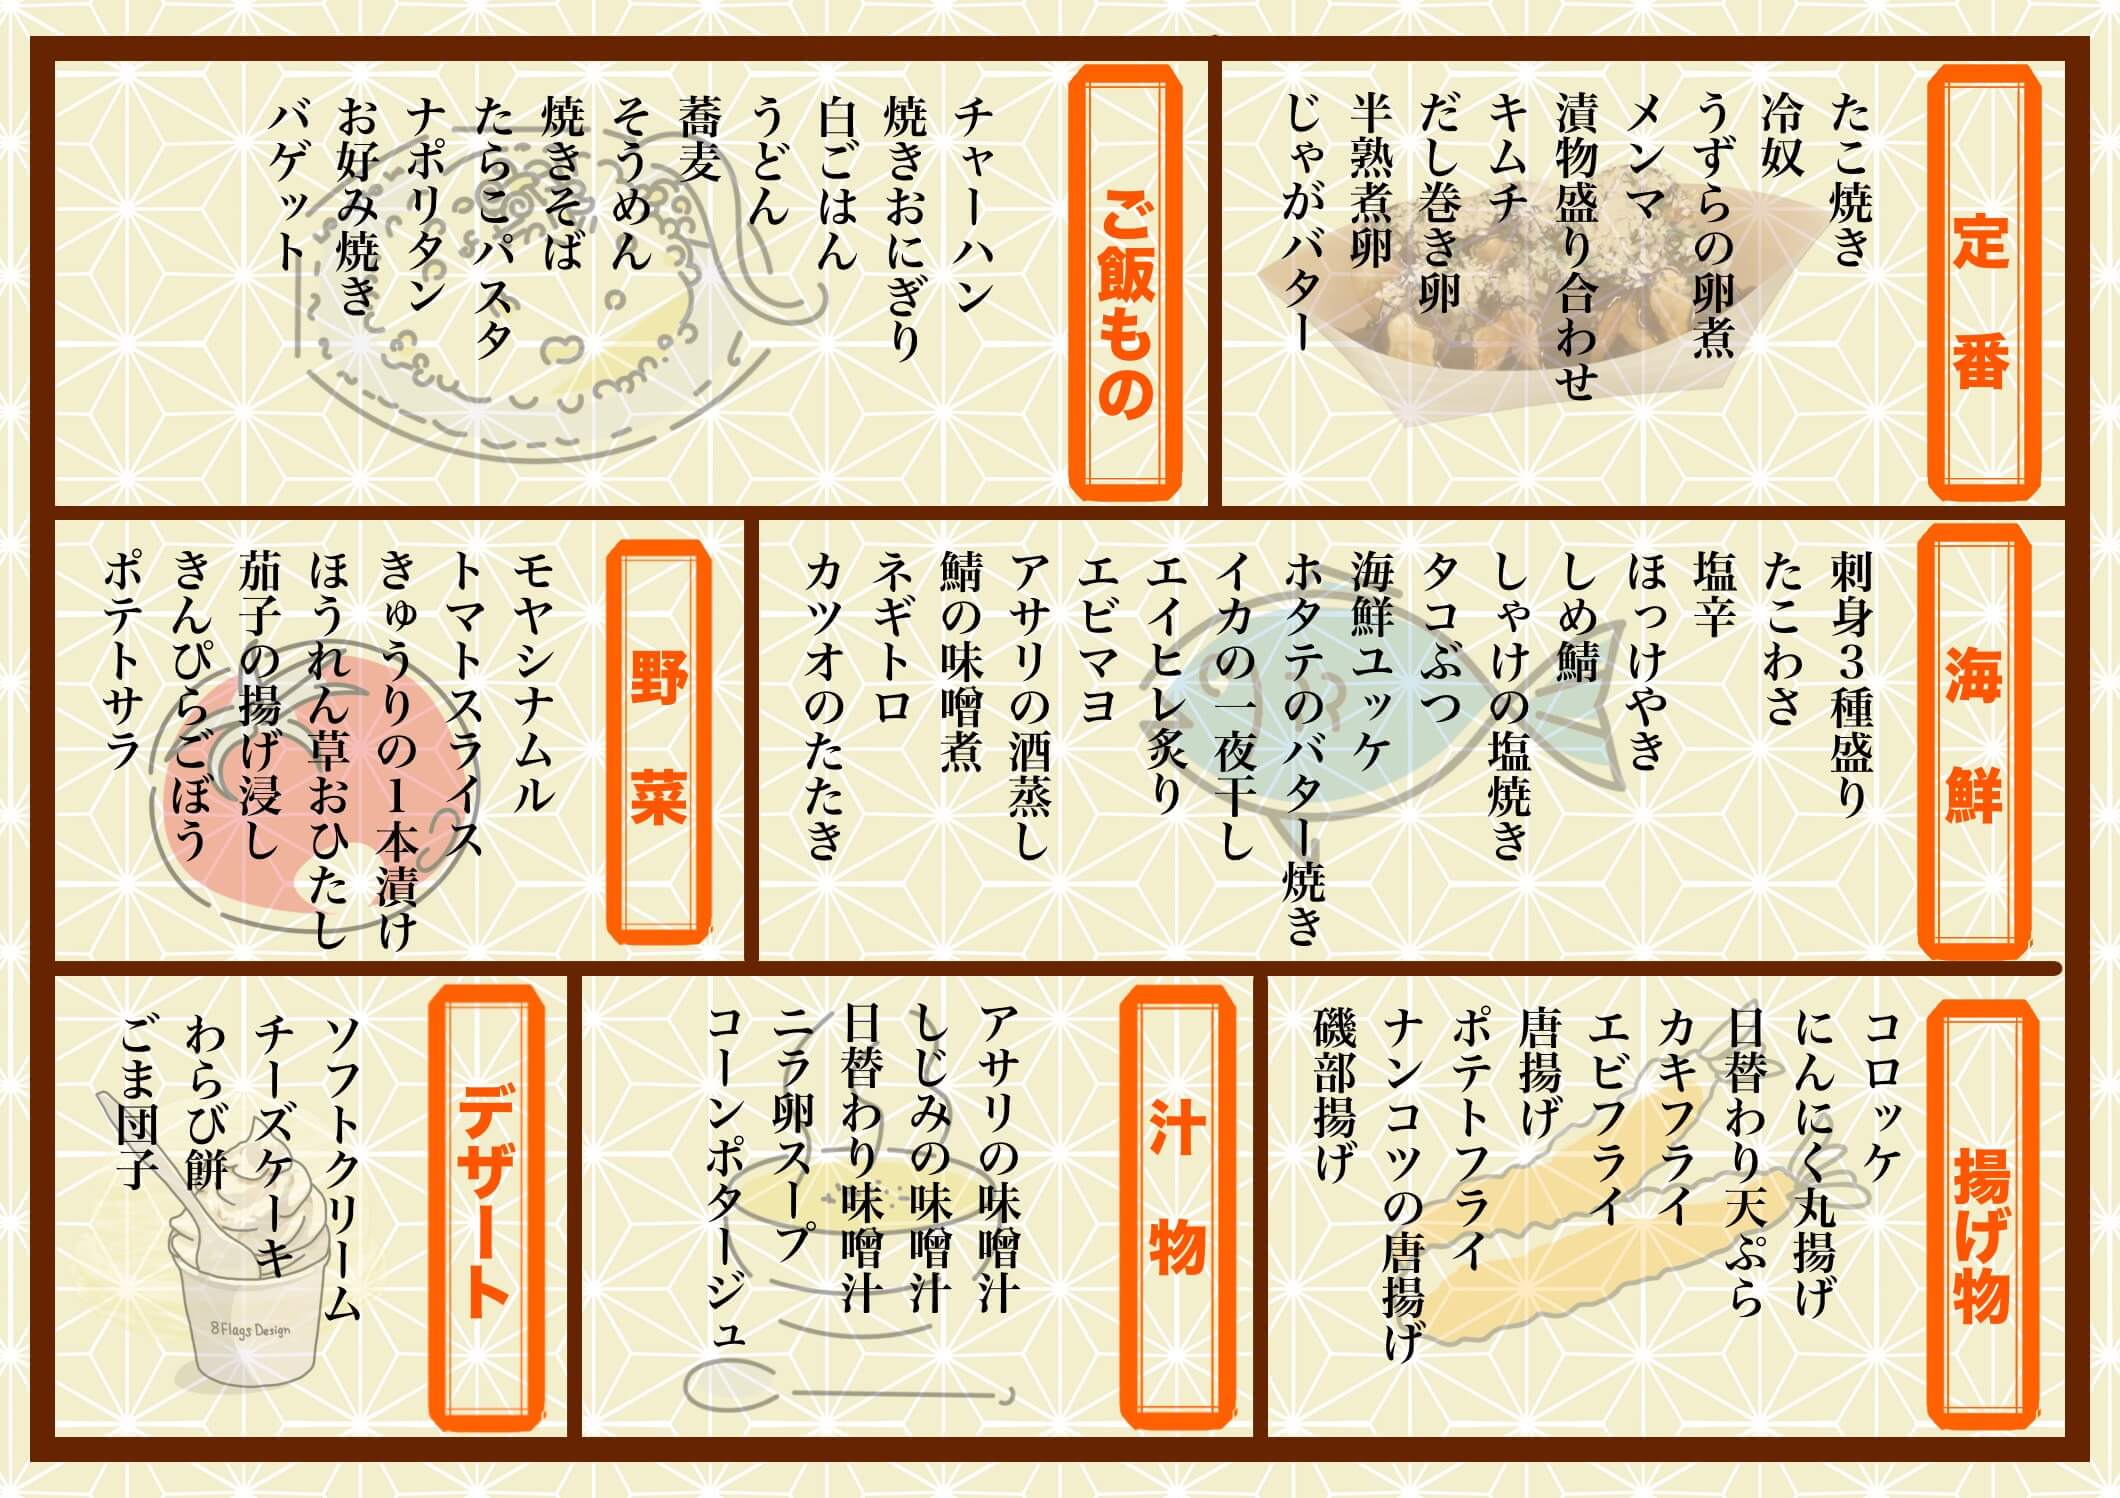 定番
たこ焼き
冷奴
うずらの卵煮
メンマ
漬物盛り合わせ
キムチ
だし巻き卵
半熟煮卵
じゃがバター
ご飯もの
チャーハン
焼きおにぎり
白ごはん
うどん
蕎麦
そうめん
焼きそば
たらこパスタ
ナポリタン
お好み焼き
バゲット
海鮮
刺身３種盛り
たこわさ
塩辛
ほっけやき
しめ鯖
しゃけの塩焼き
タコぶつ
海鮮ユッケ
ホタテのバター焼き
イカの一夜干し
エイヒレ炙り
エビマヨ
アサリの酒蒸し
鯖の味噌煮
ネギトロ
カツオのたたき
野菜
モヤシナムル
トマトスライス
きゅうりの１本漬け
ほうれん草おひたし
茄子の揚げ浸し
きんぴらごぼう
ポテトサラ
揚げ物
コロッケ
にんにく丸揚げ
日替わり天ぷら
カキフライ
エビフライ
唐揚げ
ポテトフライ
ナンコツの唐揚げ
磯部揚げ
汁物
アサリの味噌汁
しじみの味噌汁
日替わり味噌汁
ニラ卵スープ
コーンポタージュ
デザート
ソフトクリーム
チーズケーキ
わらび餅
ごま団子
8 Flags Design